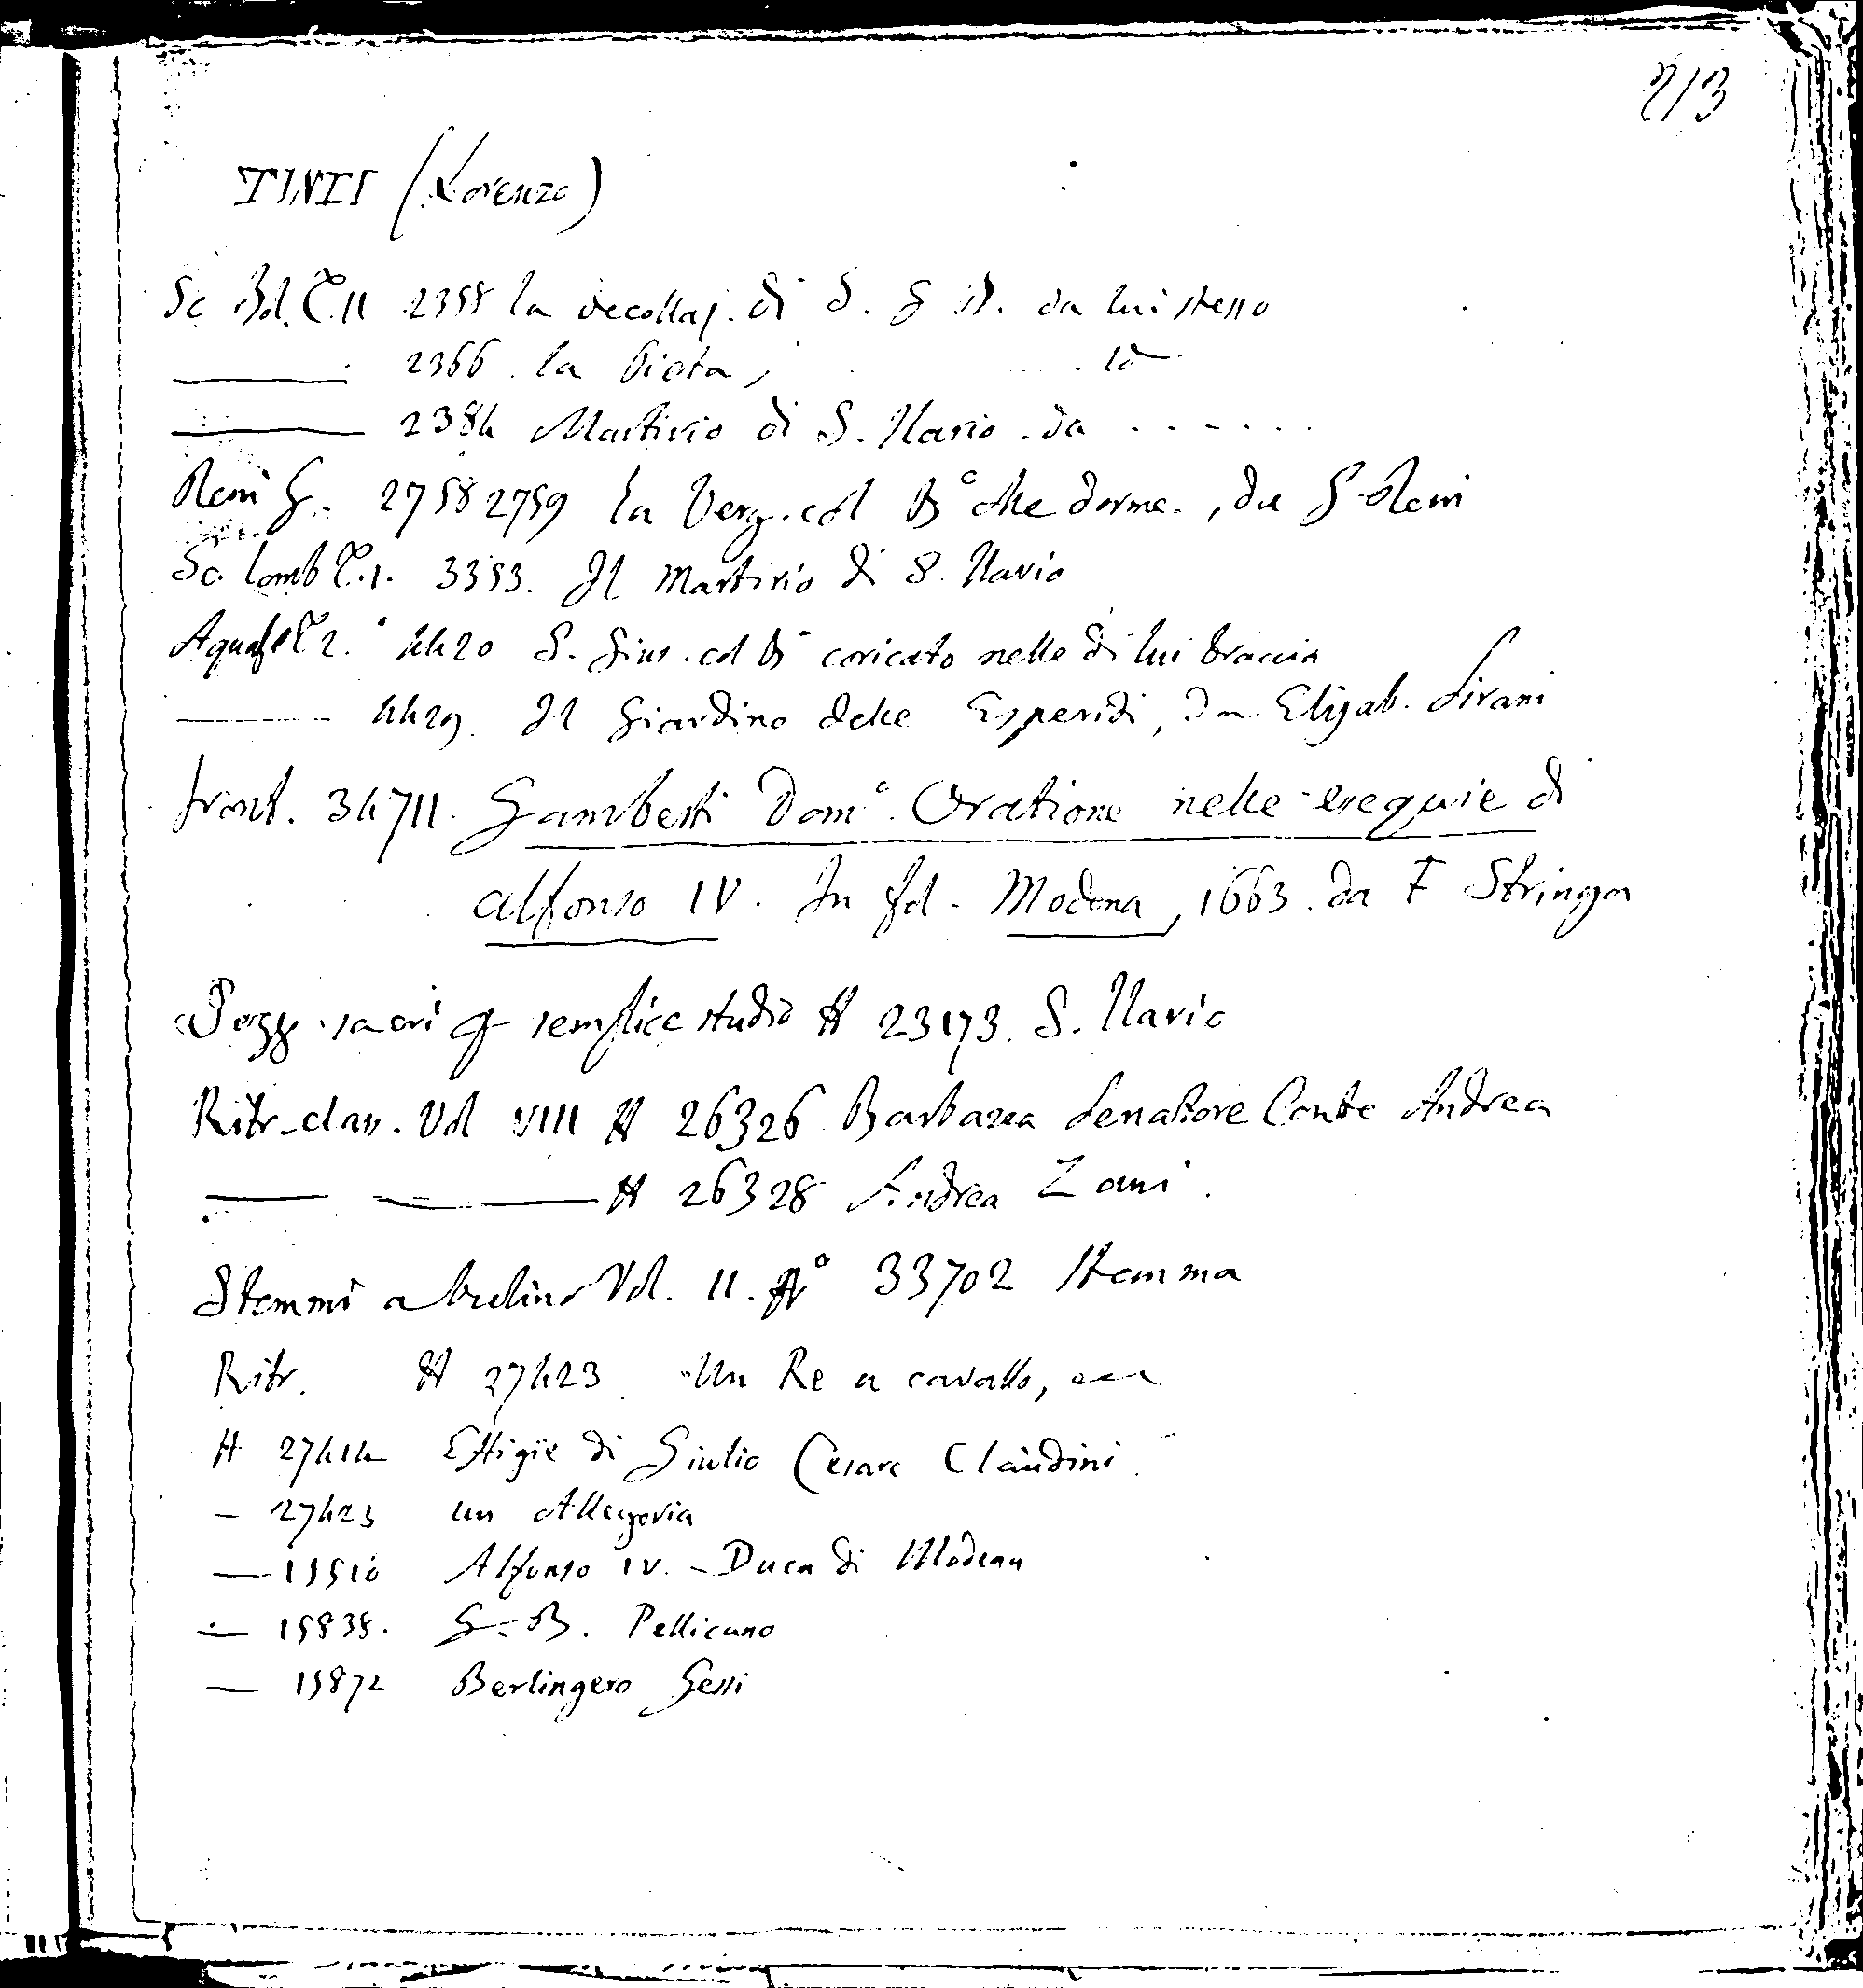 213
TINTI (Lorenzo)
Sc Bol. T. II 2358 la decollaz. di S. G B. da lui stesso
2366. la Pietà, id
2384 Martirio di S. Ilario. da . . . . . .
Reni G. 2758 2759 la Verg. col B° che dorme., da G. Reni
Sc. Lomb T. 1. 3353. Il Martirio di S. Ilario
Aquaf T 2. 4420 S. Gius. col B° coricato nelle di lui braccia
4429. Il Giardino delle Esperidi, da Elisab. Sirani
front. 34711. Gamberti Dom°. Oratione nelle esequie di
Alfonso IV. In fol. Modena, 1663. da F Stringa
Sogg. sacri p semplice studio N 23173. S. Ilario
Ritr. class. Vol VIII N 26326 Barbazza Senatore Conte Andrea
N 26328 Andrea Zani.
Stemmi a bulino Vol. II. N° 33702 Stemma
Ritr. N 27423. Un Re a cavallo,
N 27414 Effigie di Giulio Cesare Claudini
— 27423 un Allegoria
— 15510 Alfonso IV. - Duca di Modena
— 15838. G. B. Pellicano
— 15872 Berlingero Gessi